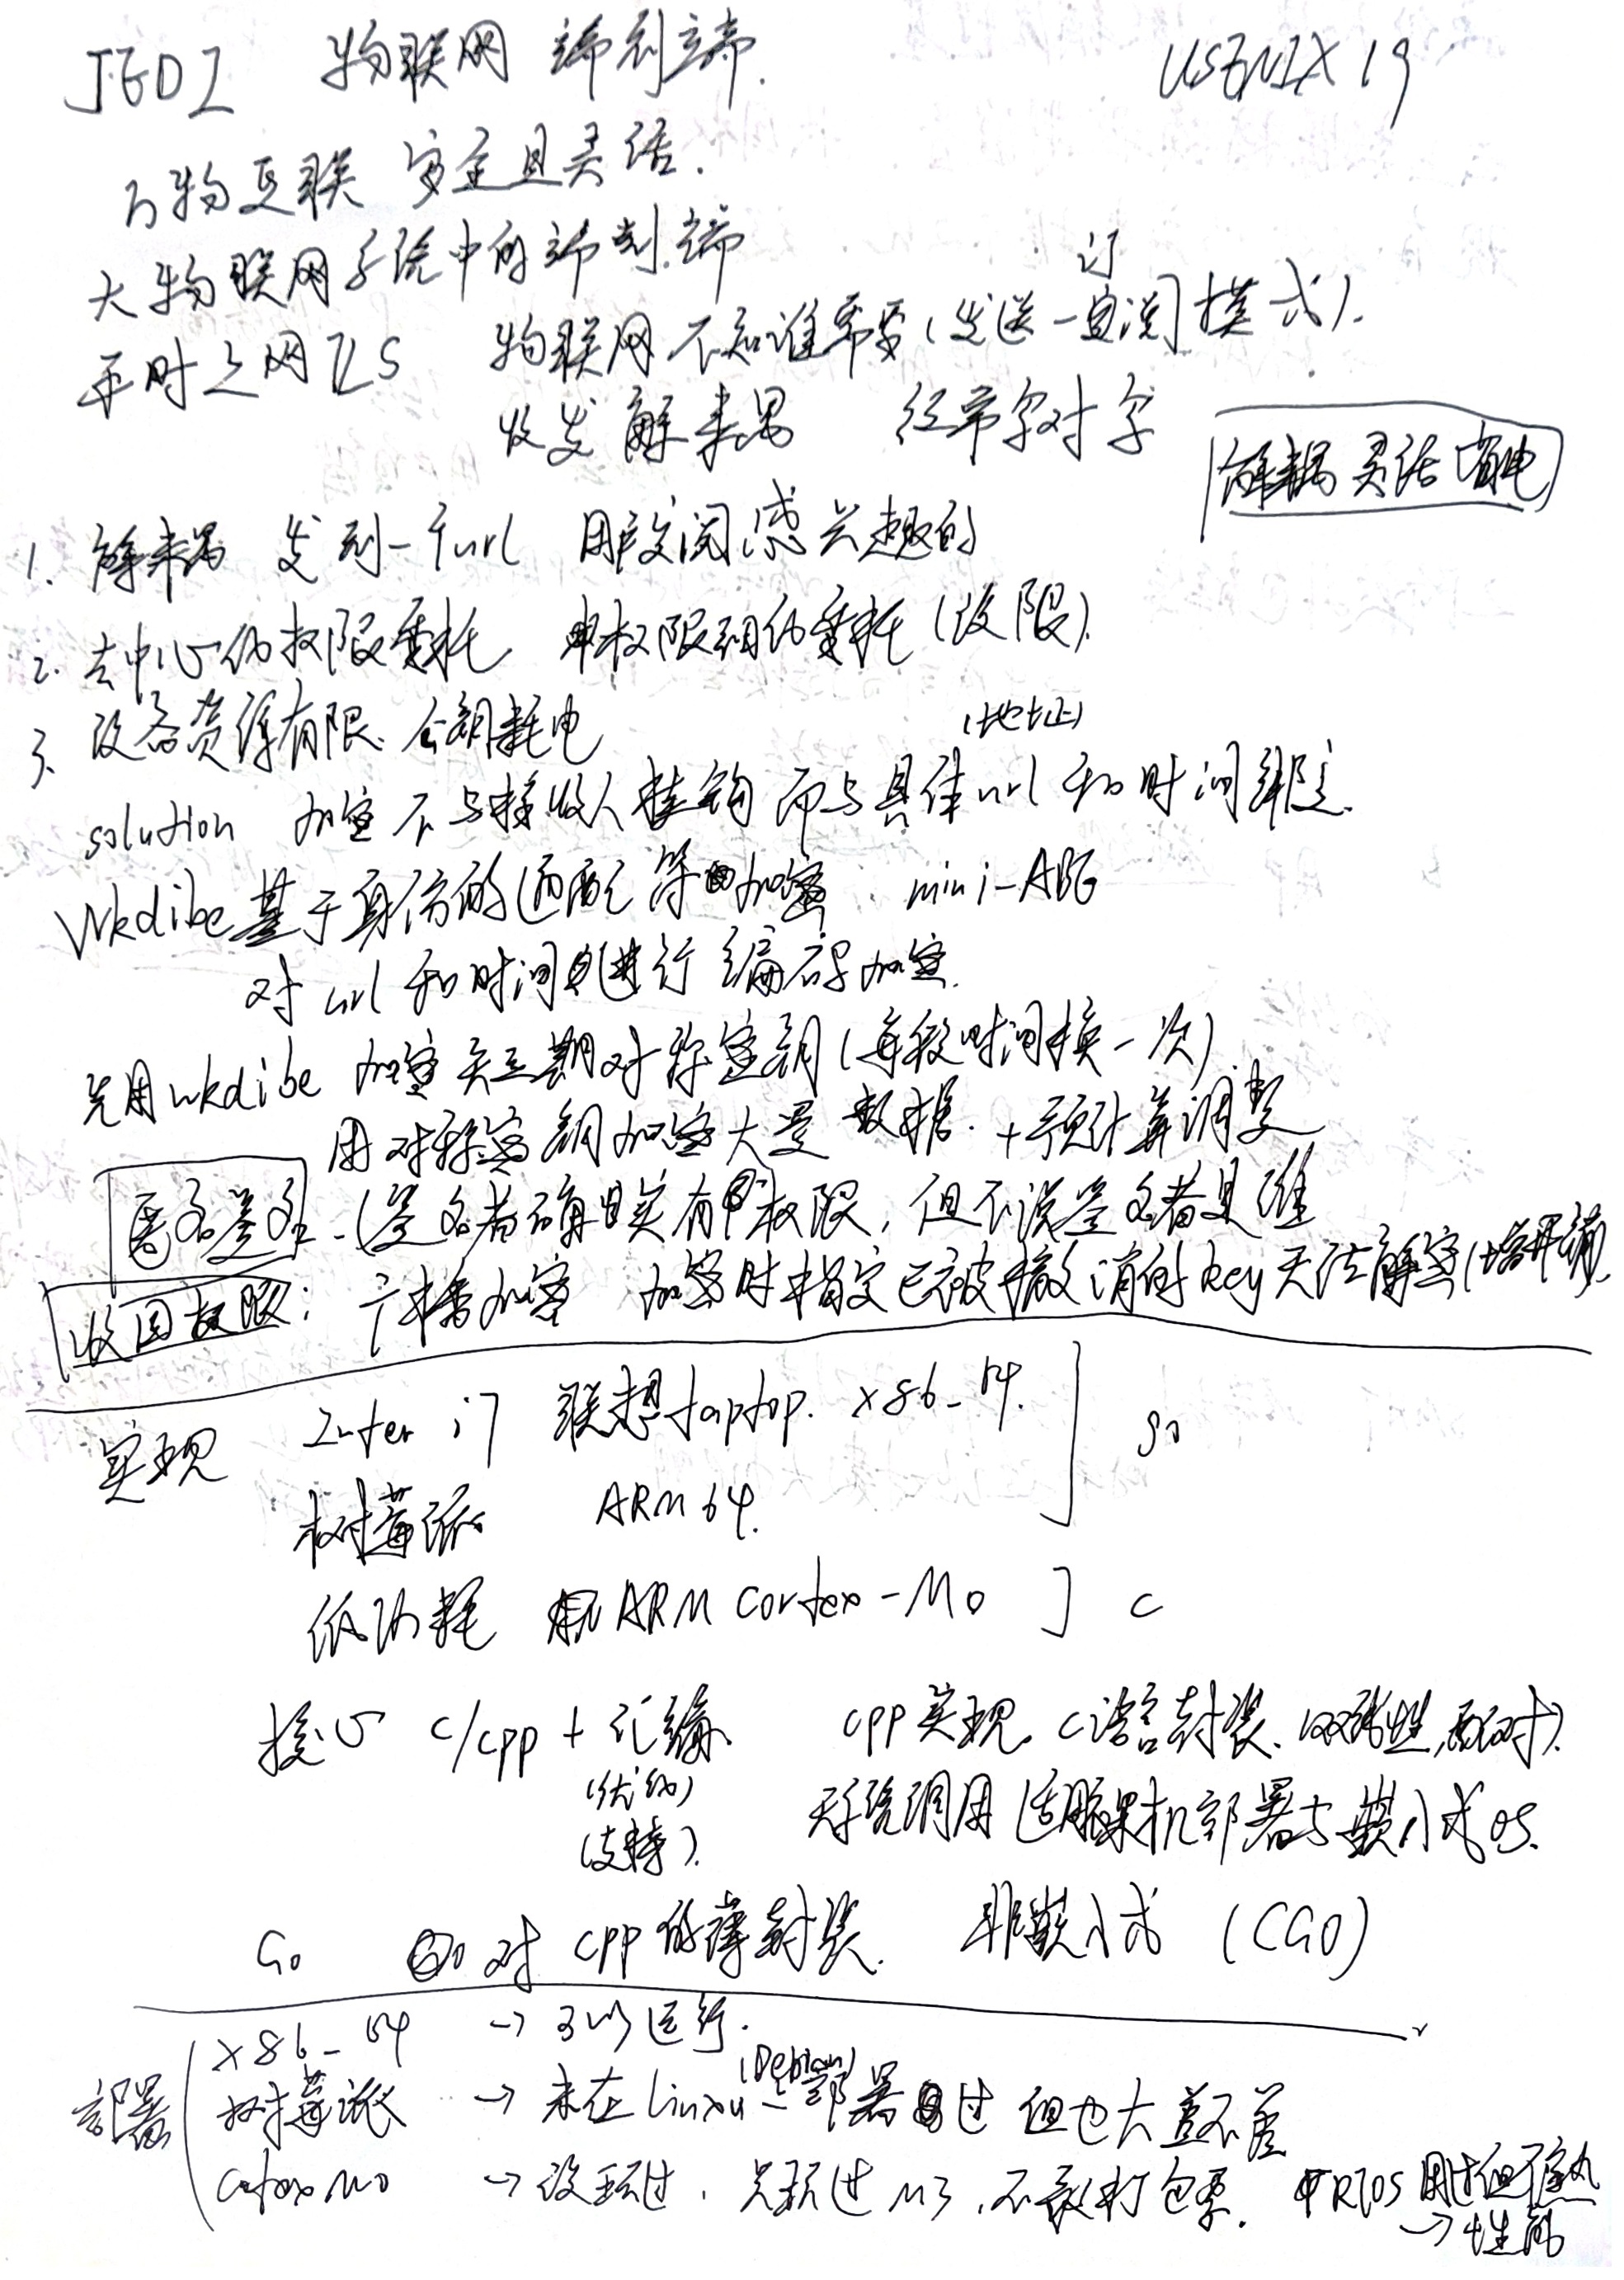 JEDI 物联网 端到端. USENIX 19
万物互联 安全且灵活.
大物联网系统中的端到端
平时上网TLS 物联网不知谁需要(发送一订阅模式).
收发解耦
解耦 灵活 省电
1. 解耦 发到一个url 用户订阅感兴趣的
2. 去中心化权限委托 单权限细化委托(设限).
3. 设备资源有限. 公钥耗电
solution 加密不与接收人挂钩 而与具体url(地址)和时间绑定.
Wkdibe 基于身份的通配符加密. mini-ABE
对url和时间进行编码加密.
先用wkdibe 加密长期对称密钥(每段时间换一次).
用对称密钥加密大量数据. +预计算调整
匿名签名 - (签名者确实有权限, 但不说签名者是谁
收回权限: 广播加密 加密时指定已被撤消的key无法解密(增开销).
实现 Inter i7 联想laptop. x86_64. ] go
树莓派 ARM64.
低功耗 ARM Cortex-M0 ] C
核心 c/cpp + 汇编 cpp实现. c语言封装. (双线性配对).
(优化)
(支持).
无系统调用 适配裸机部署与嵌入式OS.
Go 对cpp的薄封装. 非嵌入式 (CGO)
部署 x86_64 → 可以运行.
树莓派 → 未在Linxu(Debian)部署过 但也大差不差
Cortex M0 → 没玩过. 只玩过M3. 不敢打包票. RTOS 用过但不熟
→ 性能